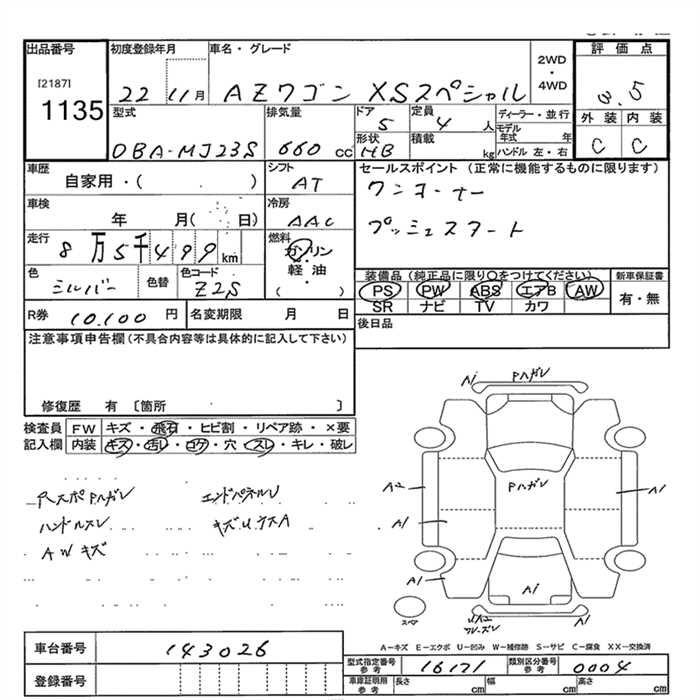 出品番号 初度登録年月 車名・グレード 2WD・4WD 評価点
[2187] 1135
22 11月 AZワゴン XSスペシャル 3.5
型式 排気量 ドア 5 定員 4人 ディーラー・並行 外装 内装
DBA-MJ23S 660cc 形状 HB 積載 kg モデル年式 年 C C
ハンドル 左・右
車歴 シフト セールスポイント(正常に機能するものに限ります)
自家用・( ) AT ワンオーナー
車検 冷房
年 月( 日) AAC プッシュスタート
走行 燃料
8万5千499km ガソリン・軽油・( )
色 色替 色コード 装備品(純正品に限り○をつけてください) 新車保証書
シルバー Z2S PS PW ABS エアB AW 有・無
SR ナビ TV カワ
R券 10,100円 名変期限 月 日 後日品
注意事項申告欄(不具合内容等は具体的に記入して下さい)
修復歴 有〔箇所 〕
検査員記入欄 FW キズ・飛石・ヒビ割・リペア跡・×要
内装 キズ・汚レ・コゲ・穴・スレ・キレ・破レ
Rスポ Pハガレ エンドパネルU
ハンドルスレ キズUケスA
AWキズ
A1 Pハガレ
A2 Pハガレ A1
A1
A1 A1
スペア UA2 A1
A-キズ E-エクボ U-凹み W-補修跡 S-サビ C-腐食 XX-交換済
車台番号 143026
型式指定番号参考 16171 類別区分番号参考 0004
登録番号
車庫証明用参考 長さ cm 幅 cm 高さ cm